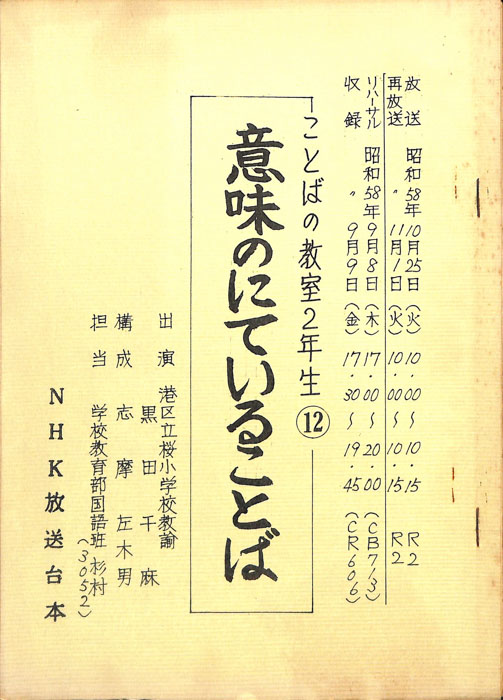 放送 昭和58年10月25日(火) 10.00〜10.15 R2
再放送 〃 11月1日(火) 10.00〜10.15 R2
リハーサル 昭和58年9月8日(木) 17.00〜20.00 (CB713)
収録 〃 9月9日(金) 17.30〜19.45 (CR606)
ことばの教室2年生⑫
意味のにていることば
出演 港区立桜小学校教諭
黒田千麻
構成 志摩左木男
担当 学校教育部国語班 杉村
(3052)
NHK放送台本